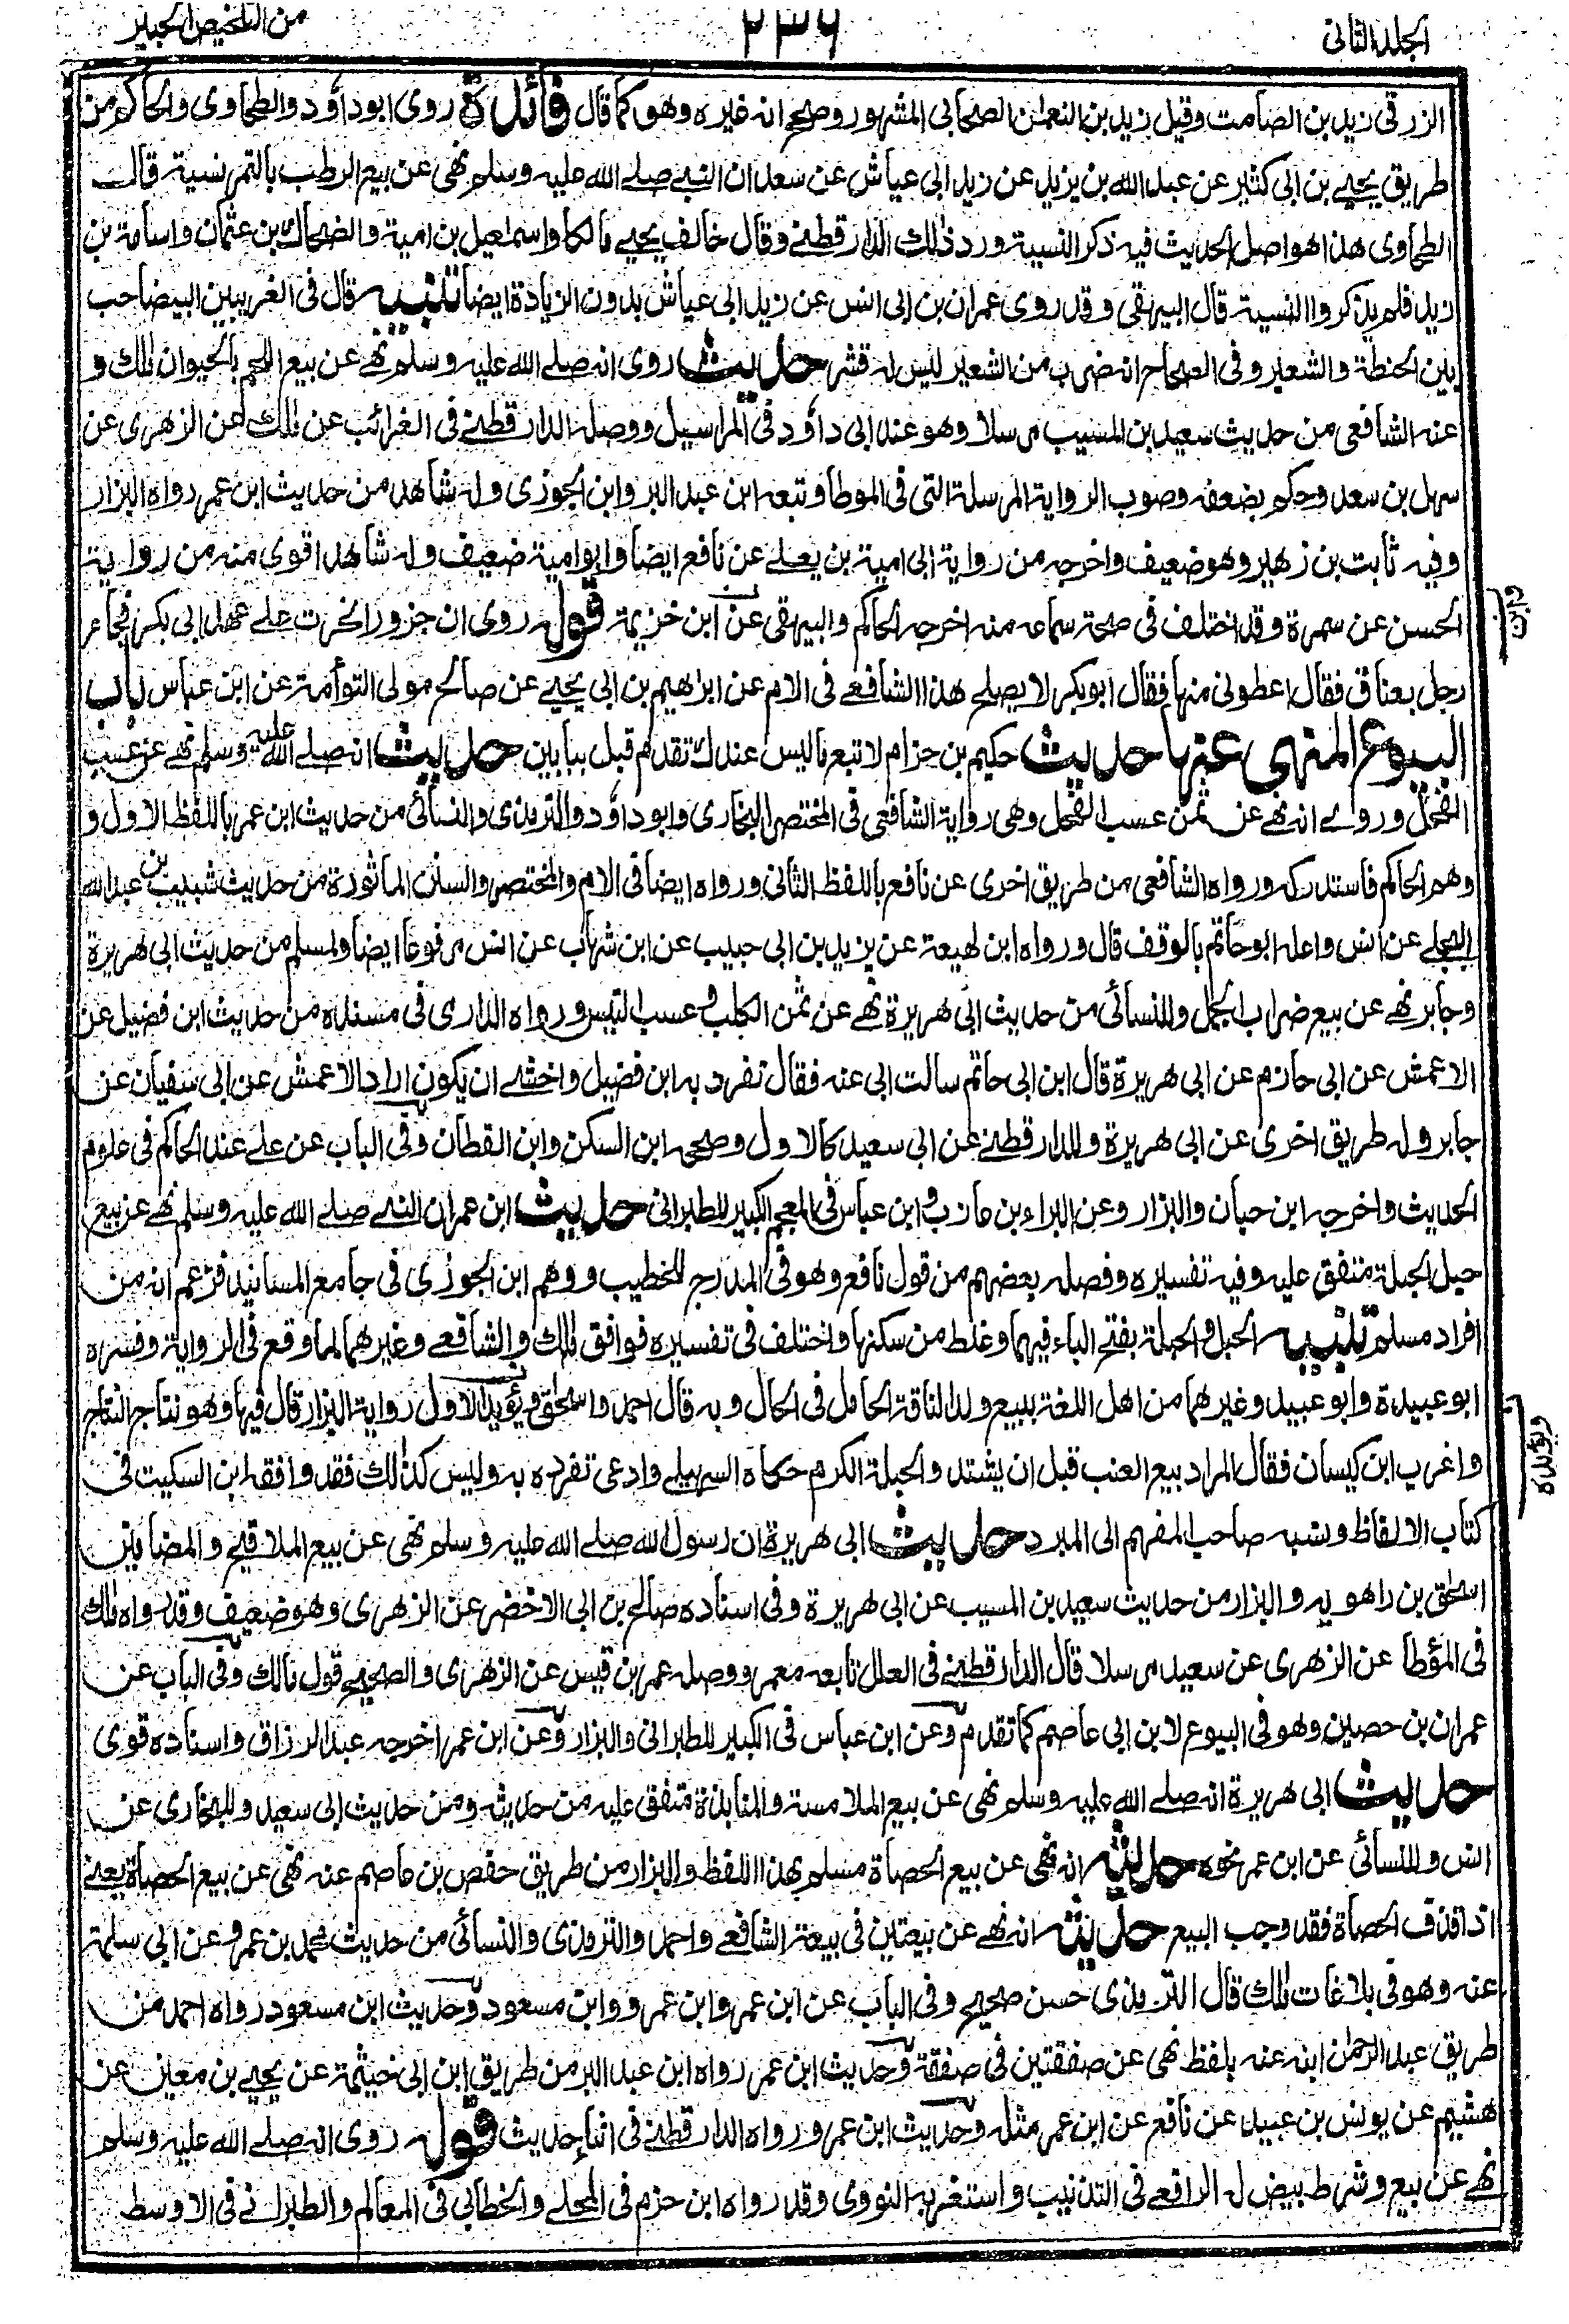 الجلد الثانی
٢٣٦
من التلخيص الحبير
الزرقى زيد بن الصامت وقيل زيد بن النعمن الصحابى المشهور وصحح انه غيره وهو كما قال فائدة روى ابو داؤد والطحاوى والحاكم من
طريق يحيے بن ابى كثير عن عبد الله بن يزيد عن زيد ابى عياش عن سعد ان النبے صلے الله عليه وسلم نهى عن بيع الرطب بالتمر نسية قال
الطحاوى هذا هو اصل الحديث فيه ذكر النسية ورد ذلك الدارقطنے وقال خالف يحيے مالكا واسمعيل بن امية والضحاك بن عثمان واسامة بن
زيد فلم يذكروا النسية قال البيهقى وقد روى عمران بن ابى انس عن زيد ابى عياش بدون الزيادة ايضا تنبيه قال فى الغريبين البيضا حب
بين الحنطة والشعير وفى الصحاح انه ضرب من الشعير ليس له قشر حديث روى انه صلے الله عليه وسلم نهے عن بيع اللحم بالحيوان مالك و
عنه الشافعى من حديث سعيد بن المسيب مرسلا وهو عند ابى داؤد فى المراسيل ووصله الدارقطنے فى الغرائب عن مالك عن الزهرى عن
سهل بن سعد وحكم بضعفه وصوب الرواية المرسلة التى فى الموطا وتبعه ابن عبد البر وابن الجوزى وله شاهد من حديث ابن عمر رواه البزار
وفيه ثابت بن زهير وهو ضعيف واخرجه من رواية ابى امية بن يعلے عن نافع ايضا وابو امية ضعيف وله شاهد اقوى منه من رواية
الحسن عن سمرة وقد اختلف فى صحة سماعه منه اخرجه الحاكم والبيهقى عن ابن خزيمة قوله روى ان جزورا نحرت علے عهد ابى بكر فجاء
رجل بعناق فقال اعطونى منها فقال ابو بكر لا يصلح هذا الشافعے فى الام عن ابراهيم بن ابى يحيے عن صالح مولى التوأمة عن ابن عباس باب
البيوع المنهى عنها حديث حكيم بن حزام لا تبع ماليس عندك تقدم قبل ببابين حديث انه صلے الله عليه وسلم نهے عن عسب
الفحل وروے انه نهے عن ثمن عسب الفحل وهى رواية الشافعى فى المختصر البخارى وابو داؤد والترمذى والنسائى من حديث ابن عمر باللفظ الاول و
وهم الحاكم فاستدركه ورواه الشافعى من طريق اخرى عن نافع باللفظ الثانى ورواه ايضا فى الام والمختصر والسنن الماثورة من حديث شبيب بن عبد الله
البجلے عن انس واعله ابو حاتم بالوقف قال ورواه ابن لهيعة عن يزيد بن ابى حبيب عن ابن شهاب عن انس مرفوعا ايضا ولمسلم من حديث ابى هريرة
وجابر نهے عن بيع ضراب الجمل وللنسائى من حديث ابى هريرة نهے عن ثمن الكلب وعسب التيس ورواه الدارى فى مسنده من حديث ابن فضيل عن
الاعمش عن ابى حازم عن ابى هريرة قال ابن ابى حاتم سالت ابى عنه فقال تفرد به ابن فضيل واخشے ان يكون اراد الاعمش عن ابى سفيان عن
جابر وله طريق اخرى عن ابى هريرة وللدارقطنے عن ابى سعيد كالاول وصححه ابن السكن وابن القطان وفى الباب عن علے عند الحاكم فى علوم
الحديث واخرجه ابن حبان والبزار وعن البراء بن عازب وابن عباس فى المعجم الكبير للطبرانى حديث ابن عمر ان النبے صلے الله عليه وسلم نهے عن بيع
حبل الحبلة متفق عليه وفيه تفسيره وفصله بعضهم من قول نافع وهو فى المدرج للخطيب ووهم ابن الجوزى فى جامع المسانيد فزعم انه من
افراد مسلم تنبيه الحبل والحبلة بفتح الباء فيهما وغلط من سكنها واختلف فى تفسيره فوافق مالك والشافعے وغيرهما لما وقع فى الرواية وفسره
ابو عبيدة وابو عبيد وغيرهما من اهل اللغة ببيع ولد الناقة الحامل فى الحال وبه قال احمد واسحق ويؤيد الاول رواية البزار قال فيها وهو نتاج النتاج
واغرب ابن كيسان فقال المراد بيع العنب قبل ان يشتد والحبلة الكرم حكاه السهيلے وادعى تفرده به وليس كذلك فقد وافقه ابن السكيت فى
كتاب الالفاظ ونسبه صاحب المفهم الى المبرد حديث ابى هريرة ان رسول الله صلے الله عليه وسلم نهى عن بيع الملاقيح والمضامين
اسحق بن راهويه والبزار من حديث سعيد بن المسيب عن ابى هريرة وفى اسناده صالح بن ابى الاخضر عن الزهرى وهو ضعيف وقد رواه مالك
فى المؤطا عن الزهرى عن سعيد مرسلا قال الدارقطنے فى العلل تابعه معمر ووصله عمر بن قيس عن الزهرى والصحيح قول مالك وفى الباب عن
عمران بن حصين وهو فى البيوع لابن ابى عاصم كما تقدم وعن ابن عباس فى الكبير للطبرانى والبزار وعن ابن عمر اخرجه عبد الرزاق واسناده قوى
حديث ابى هريرة انه صلے الله عليه وسلم نهى عن بيع الملامسة والمنابذة متفق عليه من حديثه ومن حديث ابى سعيد وللبخارى عن
انس وللنسائى عن ابن عمر نحوه حديثه انه نهى عن بيع الحصاة مسلم بهذا اللفظ والبزار من طريق حفص بن عاصم عنه نهى عن بيع الحصاة يعنے
اذا قذف الحصاة فقد وجب البيع حديثه انه نهے عن بيعتين فى بيعة الشافعے واحمد والترمذى والنسائى من حديث محمد بن عمرو عن ابى سلمة
عنه وهو فى بلاغات مالك قال الترمذى حسن صحيح وفى الباب عن ابن عمر وابن عمرو وابن مسعود وحديث ابن مسعود رواه احمد من
طريق عبد الرحمن ابنه عنه بلفظ نهى عن صفقتين فى صفقة وحديث ابن عمر رواه ابن عبد البر من طريق ابن ابى خيثمة عن يحيے بن معين عن
هشيم عن يونس بن عبيد عن نافع عن ابن عمر مثله وحديث ابن عمرو رواه الدارقطنے فى اثناء حديث قوله روى انه صلے الله عليه وسلم
نهے عن بيع وشرط بيض له الرافعے فى التذنيب واستغربه النووى وقد رواه ابن حزم فى المحلے والخطابى فى المعالم والطبرانے فى الاوسط
ويؤيده